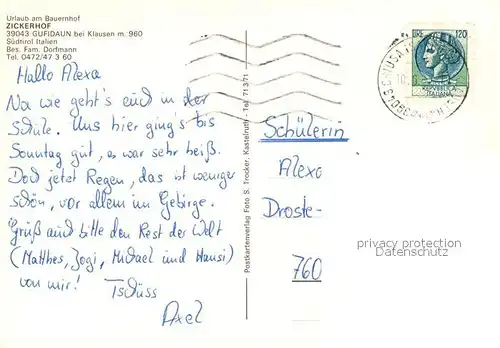 Urlaub am Bauernhof
ZICKERHOF
39043 GUFIDAUN bei Klausen m. 960
Südtirol Italien
Bes. Fam. Dorfmann
Tel. 0472/47 3 60
Hallo Alexa
Na wie geht's euch in der
Schule. Uns hier ging's bis
Sonntag gut, es war sehr heiß.
Doch jetzt Regen, das ist weniger
schön, vor allem im Gebirge.
Grüß auch bitte den Rest der Welt
(Matthes, Jogi, Michael und Hansi)
von mir! Tschüss
Axel
Postkartenverlag Foto S. Trocker, Kastelruth - Tel. 71371
LIRE 120
REPUBBLICA
ITALIANA
CHIUSA
Schülerin
Alexa
Droste-
760
privacy protection
Datenschutz